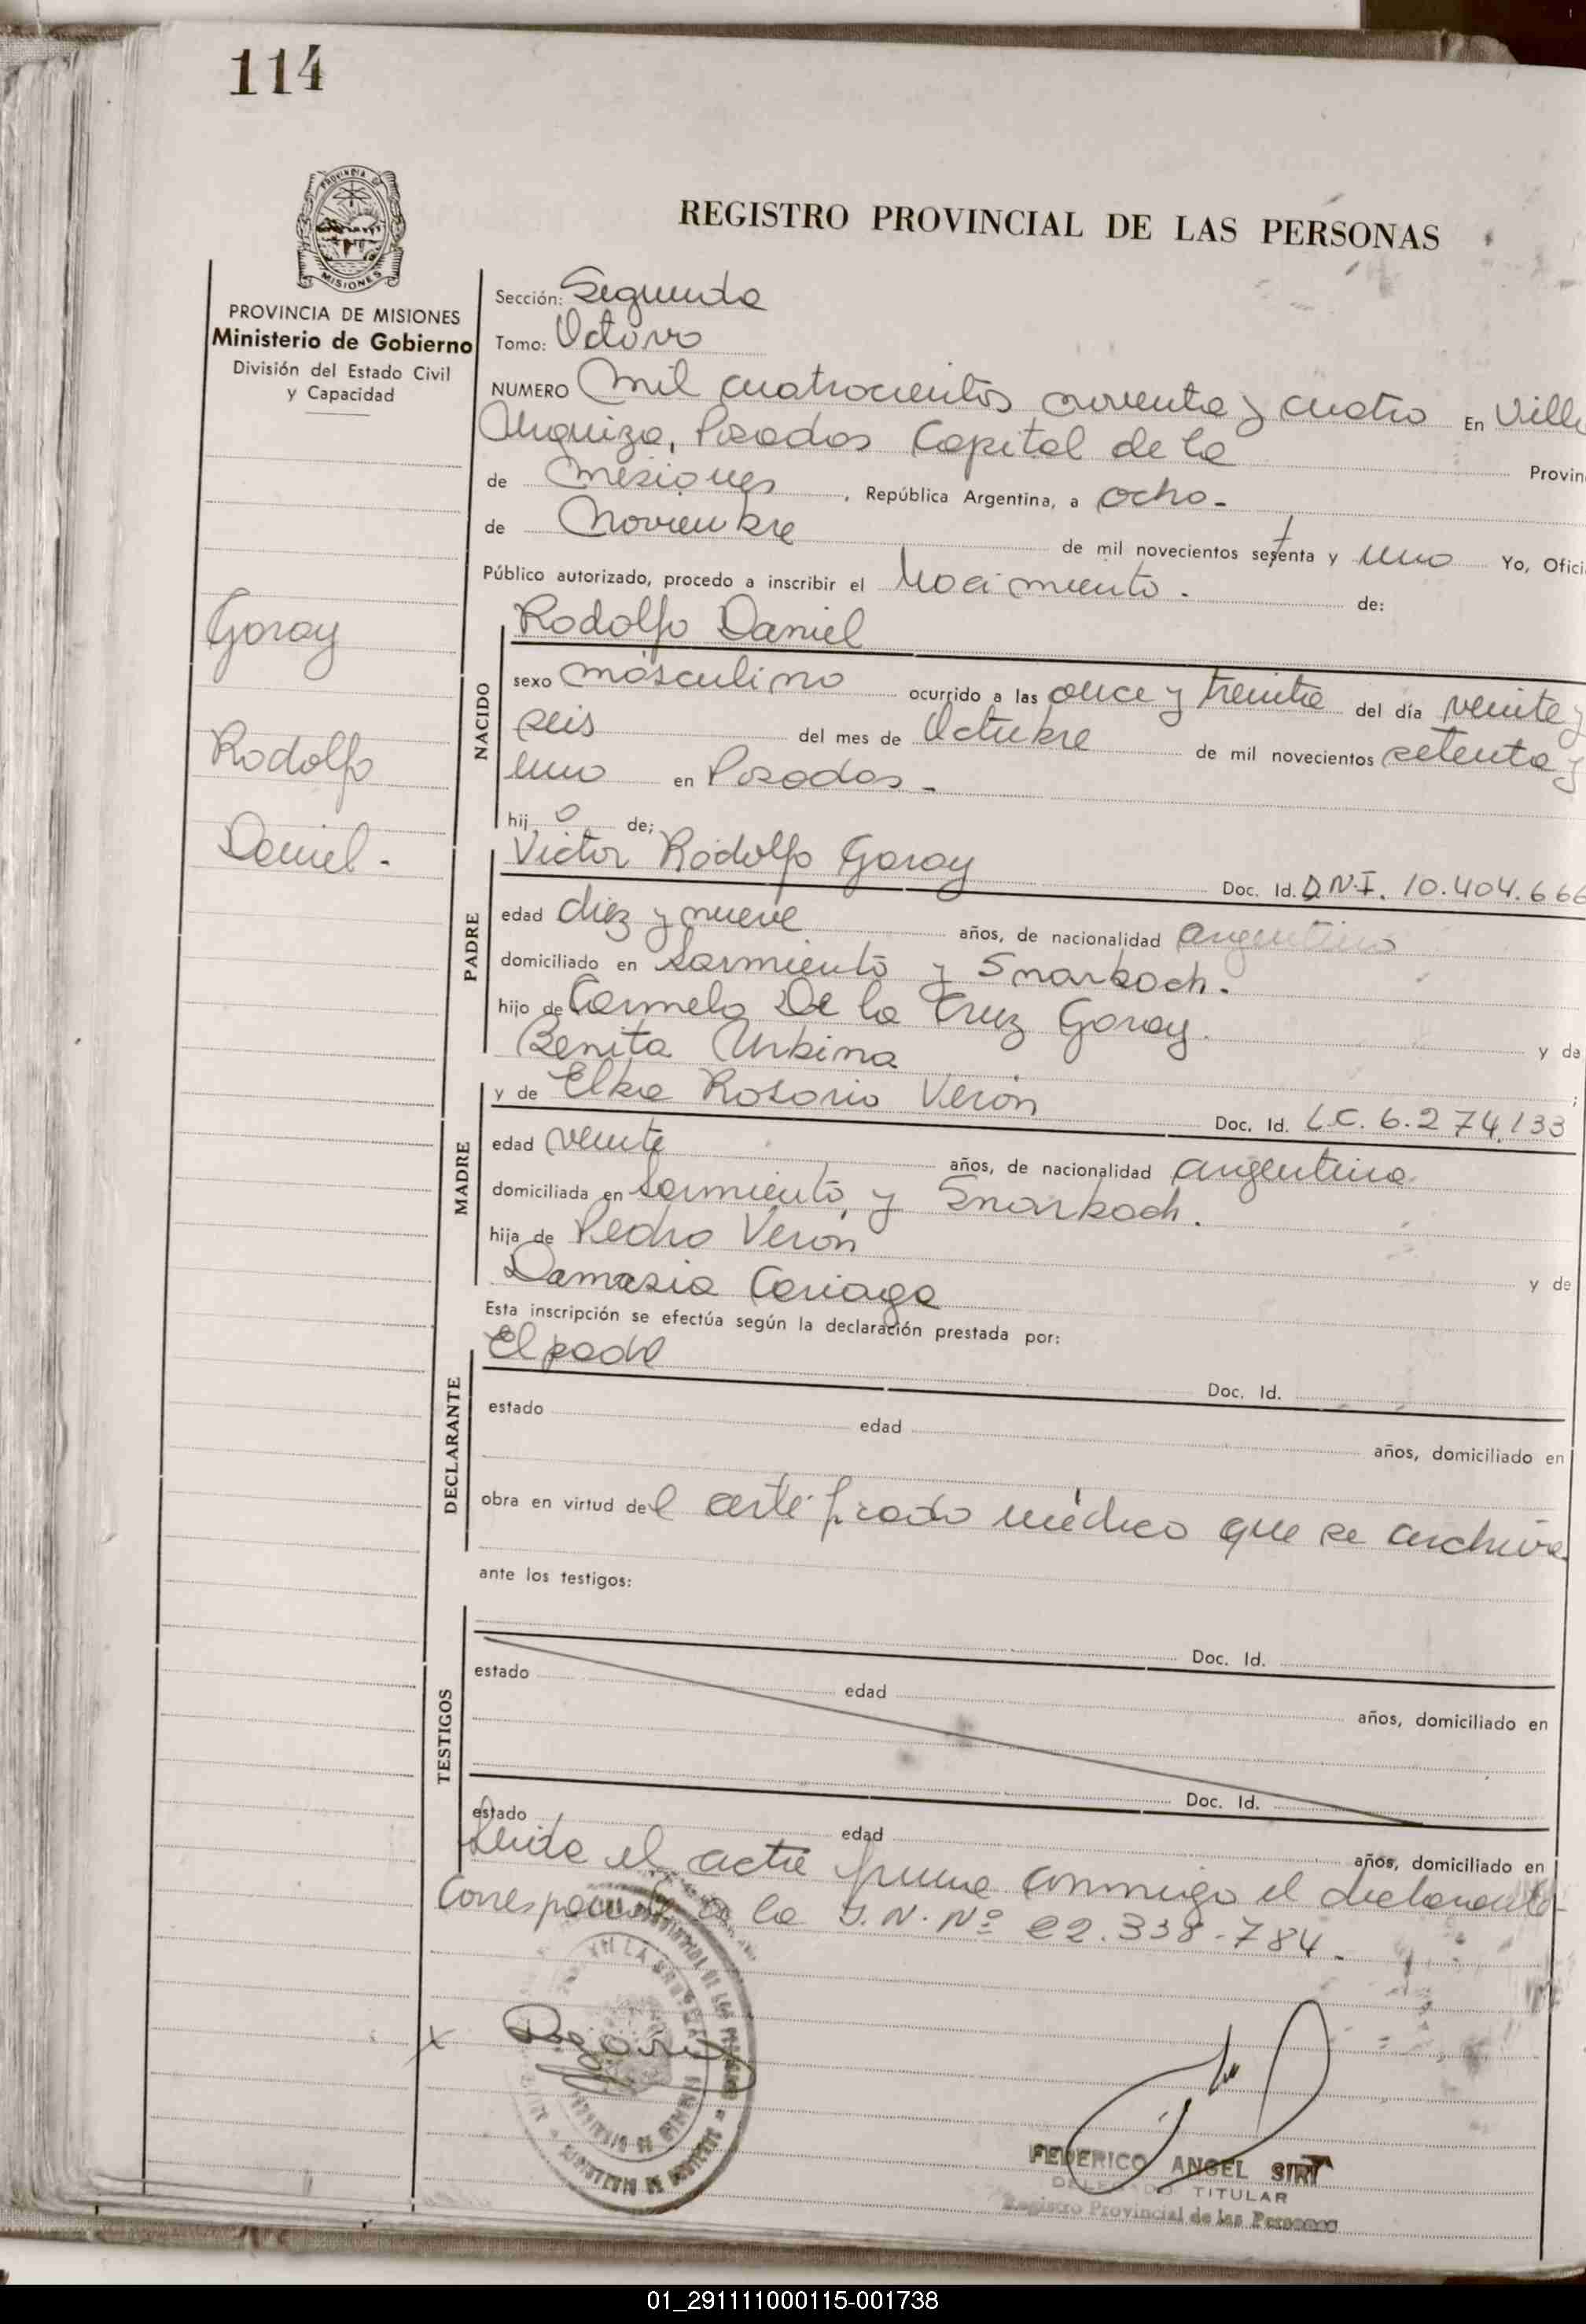 114
PROVINCIA DE
MISIONES
REGISTRO PROVINCIAL DE LAS PERSONAS
PROVINCIA DE MISIONES
Ministerio de Gobierno
División del Estado Civil
y Capacidad
Sección: Segunda
Tomo: Octavo
NUMERO Mil cuatrocientos noventa y cuatro En Villa
Urquiza, Posadas Capital de la Provin
de Misiones, República Argentina, a ocho-
de Noviembre de mil novecientos setenta y uno Yo, Ofici
Público autorizado, procedo a inscribir el Nacimiento. de:
Garay
Rodolfo
Daniel.-
NACIDO
Rodolfo Daniel
sexo masculino ocurrido a las once y treinta del día veinte y
seis del mes de Octubre de mil novecientos setenta y
uno en Posadas.-
hij o de;
PADRE
Victor Rodolfo Garay Doc. Id. D.N.I. 10.404.666
edad diez y nueve años, de nacionalidad argentino
domiciliado en Sarmiento y
hijo de Carmelo De la Cruz Garay. y de
Benita Urbina ;
MADRE
y de Elba Rosario Verón Doc. Id. L.C. 6.274.133
edad veinte años, de nacionalidad argentina
domiciliada en Sarmiento y
hija de Pedro Verón y de
Damasia Cariaga
Esta inscripción se efectúa según la declaración prestada por:
DECLARANTE
El padre Doc. Id.
estado edad años, domiciliado en
obra en virtud del certificado médico que se archiva
ante los testigos:
TESTIGOS
Doc. Id.
estado edad años, domiciliado en
Doc. Id.
estado edad años, domiciliado en
Leida el acta firma conmigo el declarante-
Corresponde a la I.N. Nº 22.338.784.-
x
FEDERICO ANGEL SIRY
DELEGADO TITULAR
Registro Provincial de las Personas
01_291111000115-001738